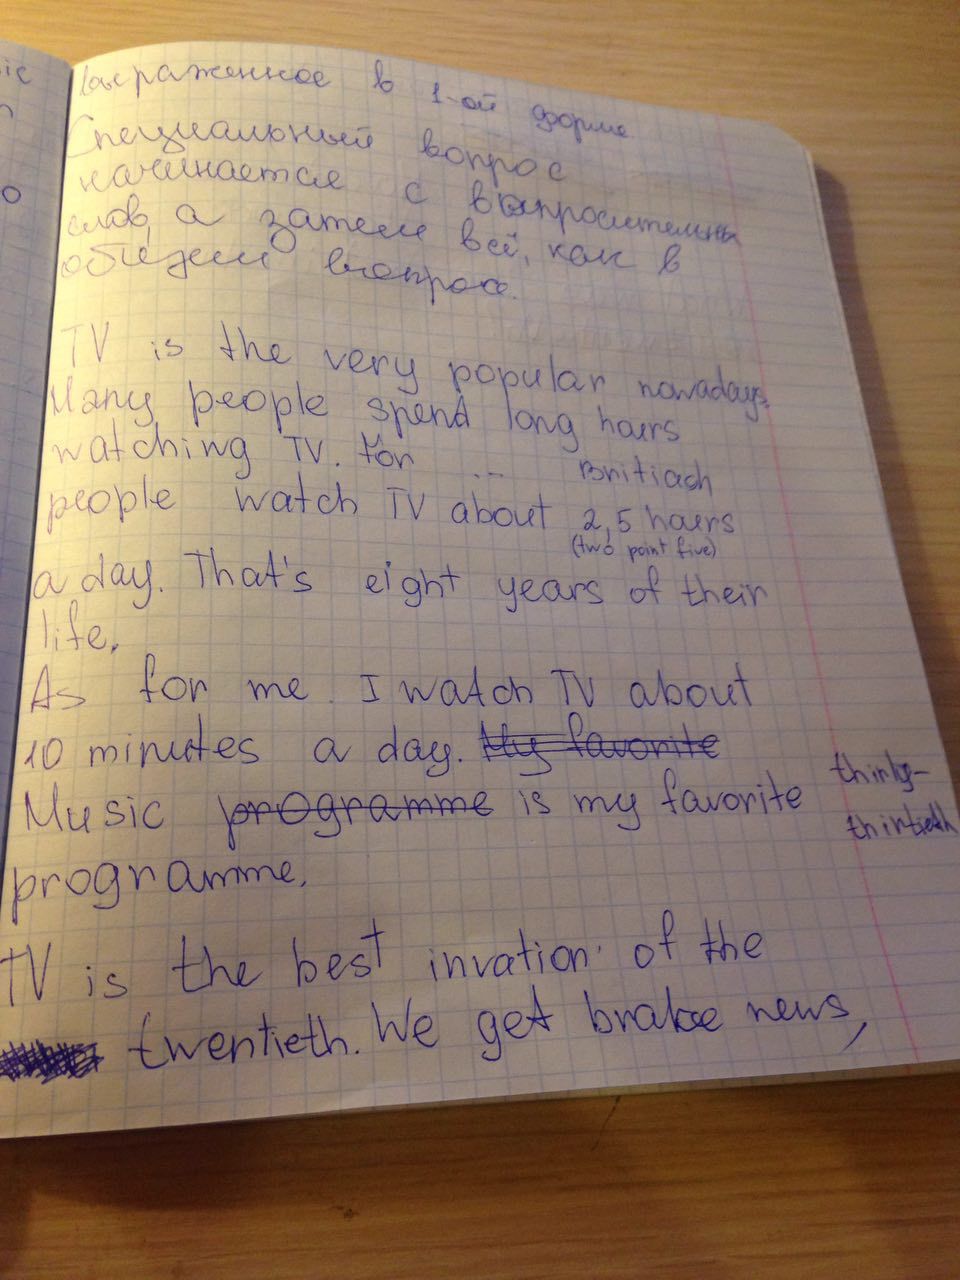 выраженное в 1-ой форме
Специальный вопрос
начинается с вопросительны
слов, а затем всё, как в
общем вопросе.
TV is the very popular nowadays.
Many people spend long hours
watching TV. for ... Britiach
people watch TV about 2,5 haers
(two point five)
a day. That's eight years of their
life.
As for me I watch TV about
10 minutes a day. My favorite
Music programme is my favorite
programme.
thirty-
thirtieth
TV is the best invation of the
twentieth. We get brake news,